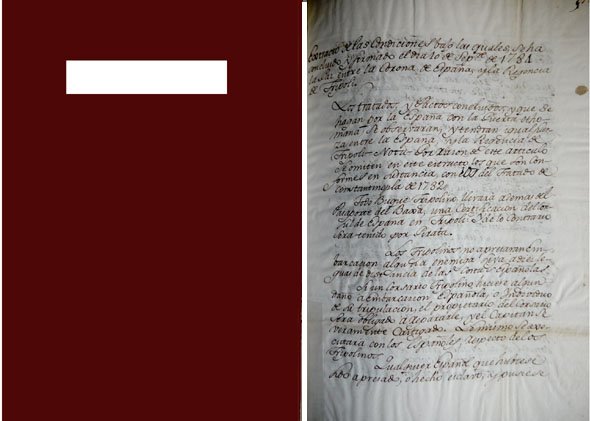 Extracto de las Condiciones bajo las quales, se ha
concluido y firmado el dia 10 de Sepre. de 1784
la Paz entre la Corona de España, y la Regencia
de Tripoli.
Los tratados, y Pactos concluidos, y que se
hagan por la España con la Puerta otho-
mana se observaran, y tendran igual fuer-
za entre la España, y la Regencia de
Tripoli. Nota. Por razon de este articulo
se omiten en este extracto los que son con-
formes en sustancia, con los del Tratado de
Constantinopla de 1782.
Todo Buque Tripolino llevará ademas del
Pasaporte del Baxá, una Certificacion del Con-
sul de España en Tripoli, y de lo Contrario
será tenido por Pirata.
Los Tripolinos no apresaran em-
barcacion alguna enemiga suya a diez le-
guas de distancia de las Costas españolas.
Si un Corsario Tripolino hiciere algun
daño a embarcacion Española, o Individuo
de su tripulacion, el propietario del Corsario
sera obligado a repararle, y el Capitan se-
veramente Castigado. Lo mismo se exe-
cutará con los Españoles, respecto de los
Tripolinos.
Qualquier Español que huviese
sido apresado, o hecho esclavo, y puese